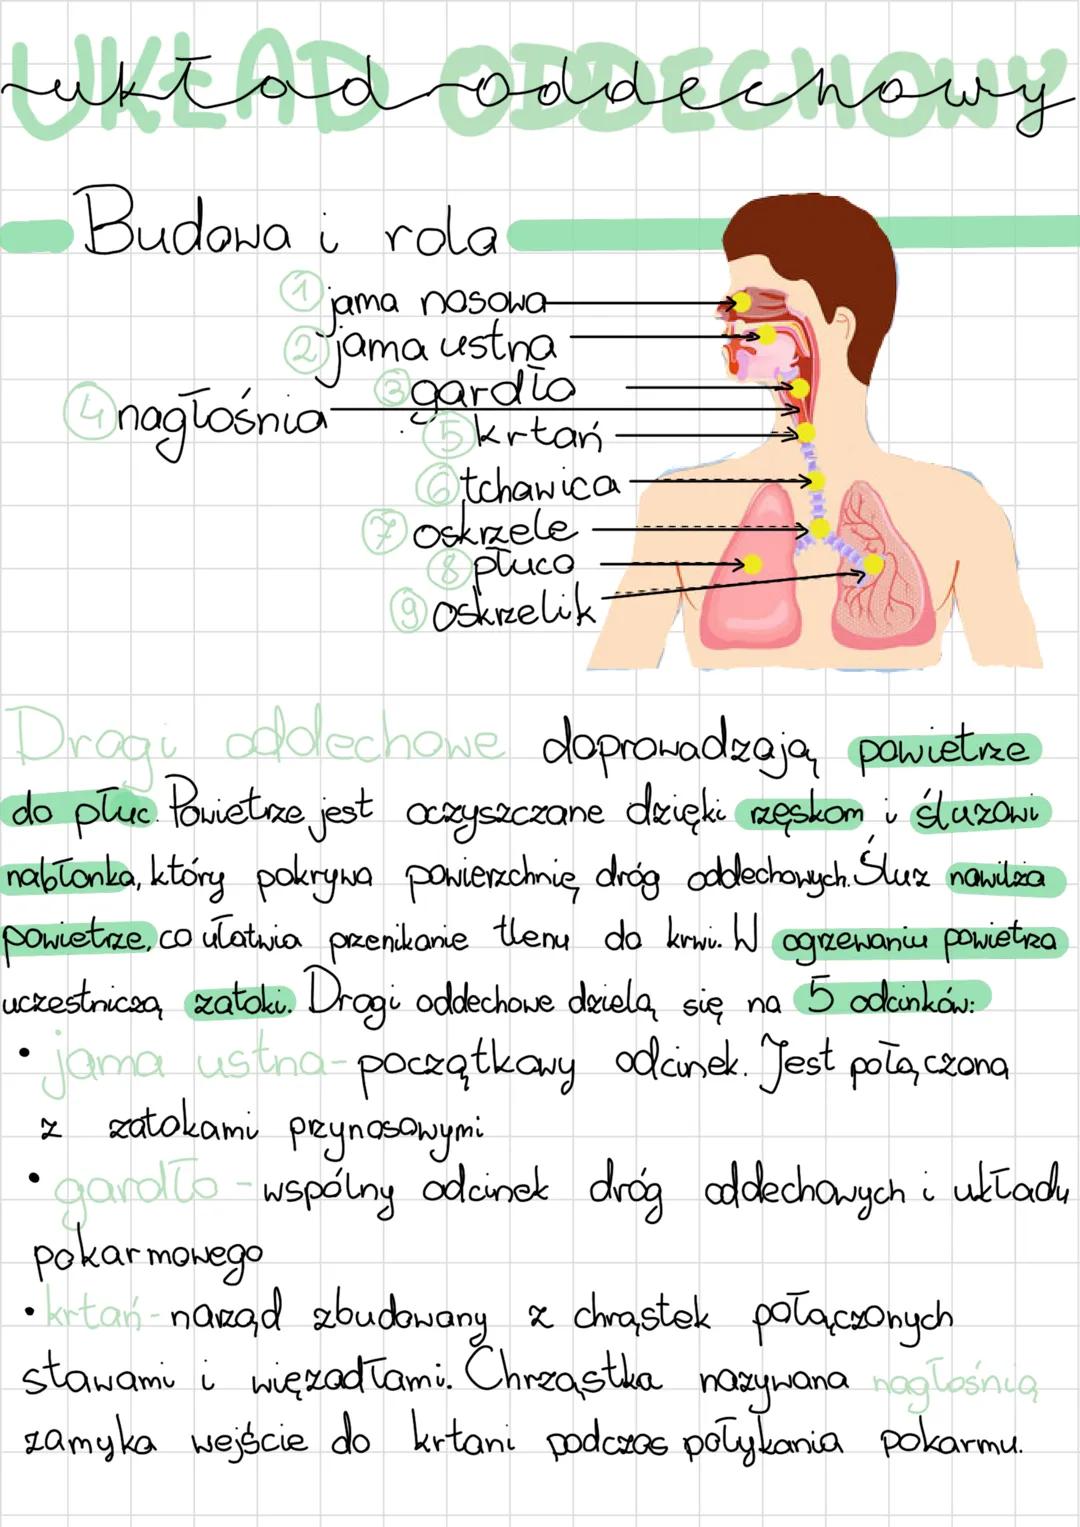 UKŁAD ODDECHOWY
układ oddechowy
Budowa i rola
1 jama nosowa
2 jama ustna
3 gardło
4 nagłośnia
5 krtań
6 tchawica
7 oskrzele
8 płuco
9 oskrzelik
Drogi oddechowe doprowadzają powietrze
do płuc. Powietrze jest oczyszczane dzięki rzęskom i śluzowi
nabłonka, który pokrywa powierzchnię dróg oddechowych. Śluz nawilża
powietrze, co ułatwia przenikanie tlenu do krwi. W ogrzewaniu powietrza
uczestniczą zatoki. Drogi oddechowe dzielą się na 5 odcinków:
• jama ustna - początkowy odcinek. Jest połączona
z zatokami przynosowymi
• gardło - wspólny odcinek dróg oddechowych i układu
pokarmowego
• krtań - narząd zbudowany z chrąstek połączonych
stawami i więzadłami. Chrząstka nazywana nagłośnią
zamyka wejście do krtani podczas połykania pokarmu.